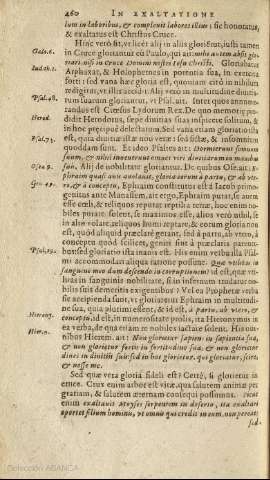 460 IN EXALTATIONE
ium in laboribus, & complevit labores illius: sic honoratus,
& exaltatus est Christus Cruce.
Hinc verò fit, vt licèt alij in alijs glorientur, iusti tamen
Galo.6. in Cruce gloriantur cũ Paulo, qui ait: mihi autem absit glo-
riari nisi in Cruce Domini nostri Iesu Christi. Gloriabatur
Iudith.1. Arphaxat, & Holophernes in potentia sua, in exercitu
forti: sed vana hæc gloria est, quoniam citò in nihilum
redigitur, vt illis accidit. Alij verò in multitudine diuitia-
Psal.48. rum suarum gloriantur, vt Psal. ait. Inter quos annume-
randus est Crœsus Lydorum Rex. De quo memoriæ pro-
Herod. didit Herodotus, sæpe diuitias suas inspicere solitum, &
in hoc præcipuè delectatum. Sed vana etiam gloria ista
est, quia diuitiæ istæ nõ veræ: sed fictæ, & insomnium
Psal.75. quoddam sunt. Et ideo Psaltes ait: Dormierunt somnum
suum, & nihil inuenerunt omnes viri diuitiarum in manibus
Osea 9. suis. Alij de nobilitate gloriantur. De quibus Ose. ait: E-
phraim quasi auis auolauit, gloria eorum à partu, & ab vte-
Gen.41. ro, & à conceptu, Ephraim constitutus est à Iacob primo-
genitus ante Manassem, ait ergo, Ephraim putat, se auem
esse cœli, & reliquos reputat reptilia terræ, hoc enim no-
biles putare solent, se maximos esse, alios verò nihil, se
in alto volare, reliquos humi reptare, & eorum gloria non
est, quòd aliquid præclarè gerant, sed à partu, ab vtero, à
conceptu quòd scilicet, geniti sint à præclaris paren-
Psal.29. bus: sed gloriatio ista inanis est. His enim verba illa Psal-
mi accommodari aliqua ratione possunt: Quæ vtilitas in
sanguine meo dum descendo in corruptionem? id est, quæ vti-
litas in sanguinis nobilitate, si in infernum trudatur no-
bilis suis demeritis exigentibus? Vel ea Prophetæ verba
sic accipienda sunt, vt glorietur Ephraim in multitudi-
ne sua, quia plurimi essent, & id est, à partu, ab vtero, &
Hierony. conceptu, id est, in numerositate prolis, ita Hieronymus in
ea verba, de qua etiam re nobiles iactare solent. His om-
Hier.9. nibus Hierem. ait: Non glorietur sapiens in sapientia sua,
& non glorietur fortis in fortitudine sua, & non glorietur
diues in diuitijs suis: sed in hoc glorietur, qui gloriatur, scire,
& nosse me.
Sed quæ vera gloria fideli est? Certè, si glorietur in
cruce. Crux enim arbor est vitæ, qua salutem animæ per
gratiam, & salutem æternam consequi possumus. Sicut
enim exaltauit Moyses serpentem in deserto, ita exaltari
oportet filium hominis, vt omnis qui credit in eum, non pereat:
sed
Colección ABANCA